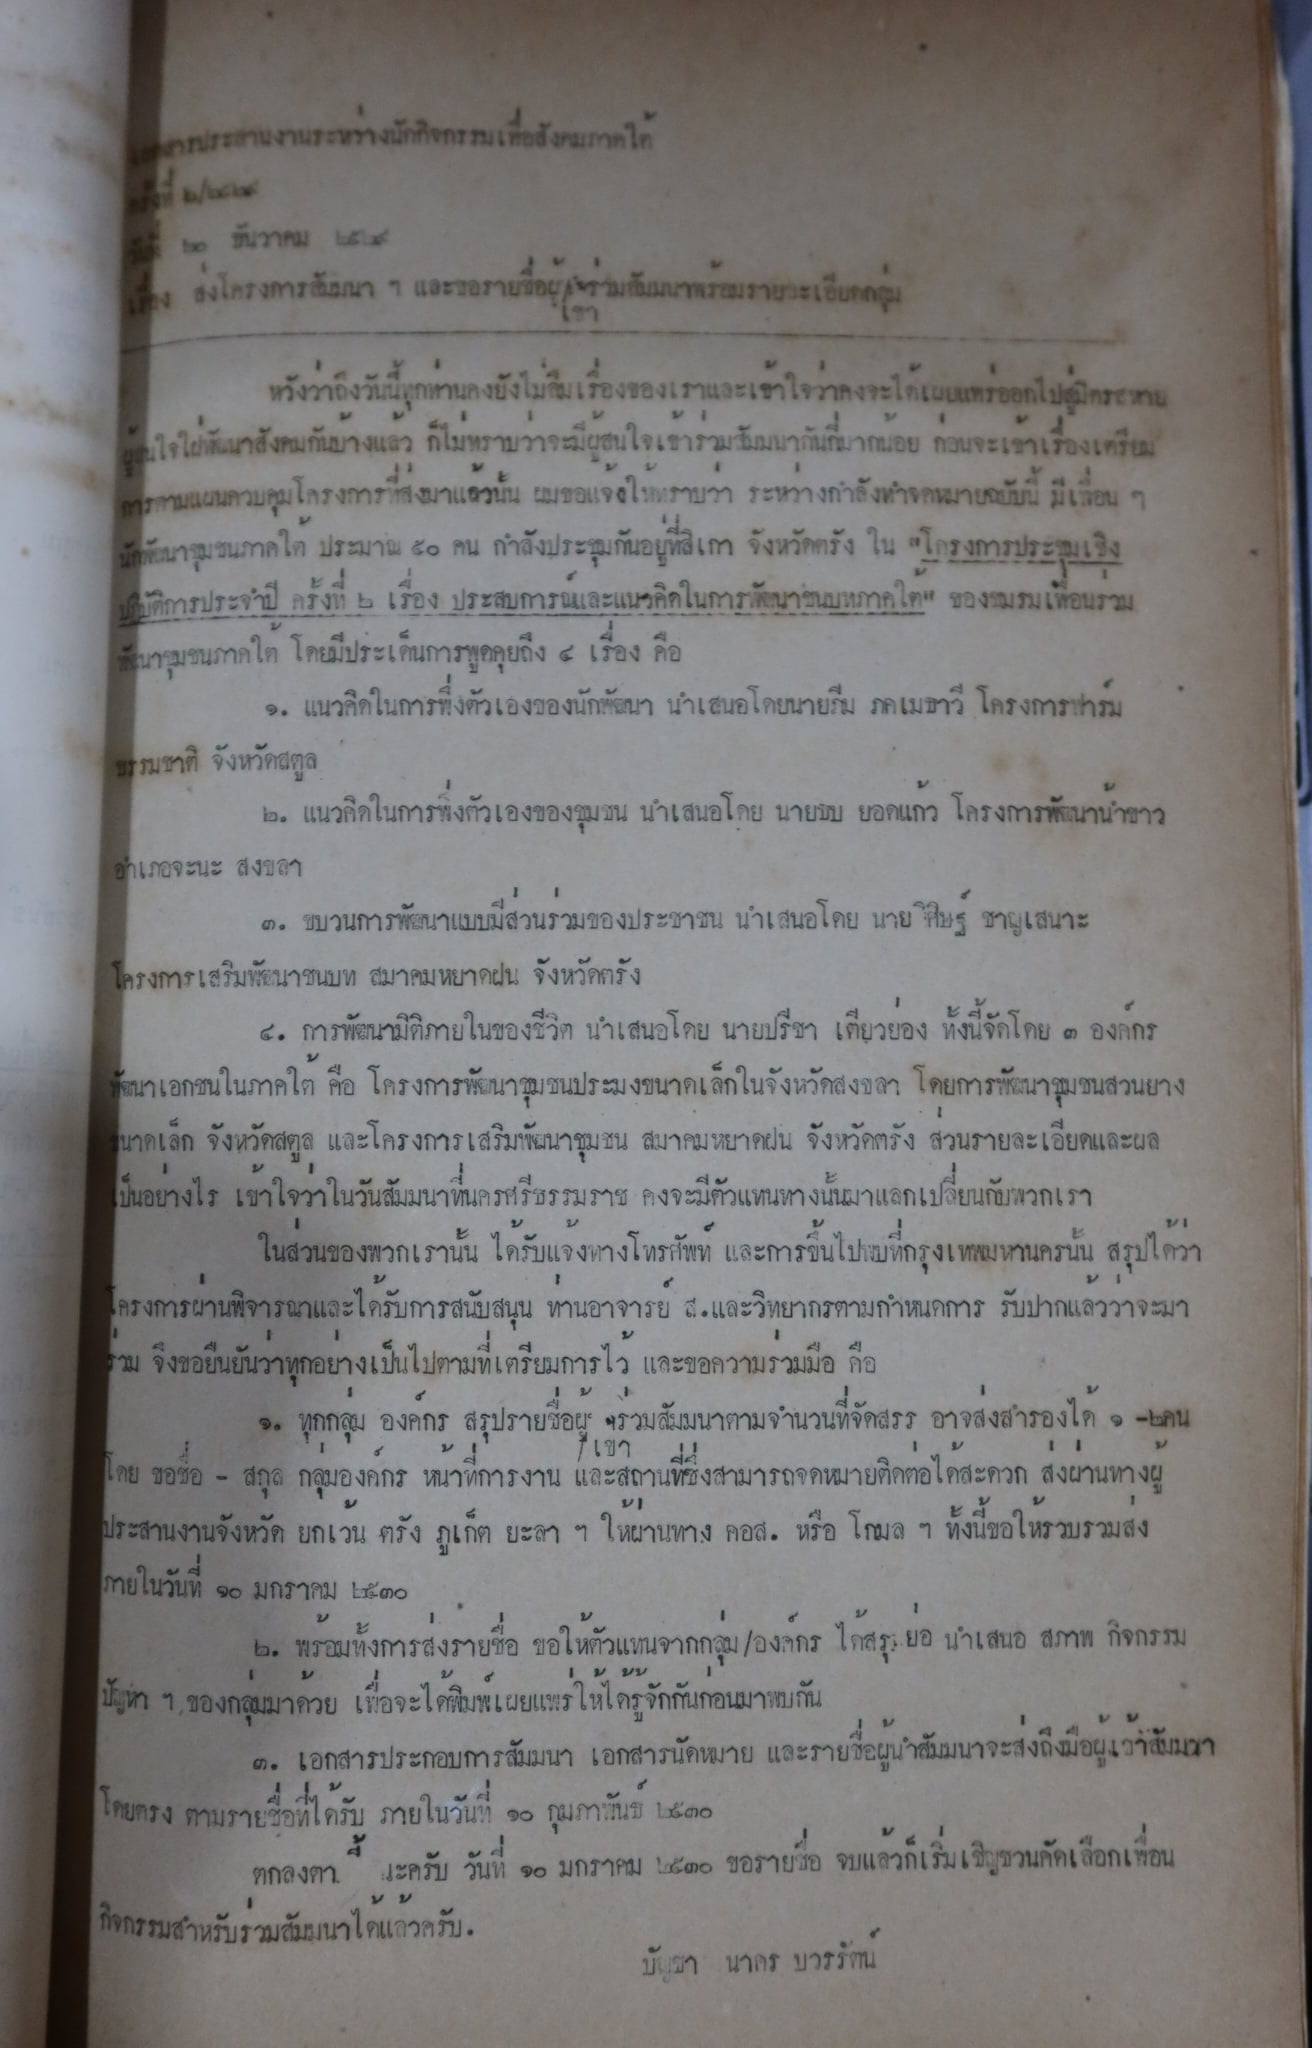 เอกสารประสานงานระหว่างนักกิจกรรมเพื่อสังคมภาคใต้
ครั้งที่ ๒/๒๕๒๙
วันที่ ๒๐ ธันวาคม ๒๕๒๙
เรื่อง ส่งโครงการสัมมนา ฯ และขอรายชื่อผู้/ร่วมสัมมนาพร้อมรายละเอียดกลุ่ม
เขา
หวังว่าถึงวันนี้ทุกท่านคงยังไม่ลืมเรื่องของเราและเข้าใจว่าคงจะได้เผยแพร่ออกไปสู่มิตรสหาย
ผู้สนใจใฝ่พัฒนาสังคมกันบ้างแล้ว ก็ไม่ทราบว่าจะมีผู้สนใจเข้าร่วมสัมมนากันกี่มากน้อย ก่อนจะเข้าเรื่องเตรียม
การตามแผนควบคุมโครงการที่ส่งมาแล้วนั้น ผมขอแจ้งให้ทราบว่า ระหว่างกำลังทำจดหมายฉบับนี้ มีเพื่อน ๆ
นักพัฒนาชุมชนภาคใต้ ประมาณ ๕๐ คน กำลังประชุมกันอยู่ที่สิเกา จังหวัดตรัง ใน "โครงการประชุมเชิง
ปฏิบัติการประจำปี ครั้งที่ ๒ เรื่อง ประสบการณ์และแนวคิดในการพัฒนาชนบทภาคใต้" ของชมรมเพื่อนร่วม
พัฒนาชุมชนภาคใต้ โดยมีประเด็นการพูดคุยถึง ๔ เรื่อง คือ
๑. แนวคิดในการพึ่งตัวเองของนักพัฒนา นำเสนอโดยนายกีม ภคเมธาวี โครงการฟาร์ม
ธรรมชาติ จังหวัดสตูล
๒. แนวคิดในการพึ่งตัวเองของชุมชน นำเสนอโดย นายชบ ยอดแก้ว โครงการพัฒนาน้ำขาว
อำเภอจะนะ สงขลา
๓. ขบวนการพัฒนาแบบมีส่วนร่วมของประชาชน นำเสนอโดย นาย พิศิษฐ์ ชาญเสนาะ
โครงการเสริมพัฒนาชนบท สมาคมหยาดฝน จังหวัดตรัง
๔. การพัฒนามิติภายในของชีวิต นำเสนอโดย นายปรีชา เตียวย่อง ทั้งนี้จัดโดย ๓ องค์กร
พัฒนาเอกชนในภาคใต้ คือ โครงการพัฒนาชุมชนประมงขนาดเล็กในจังหวัดสงขลา โดยการพัฒนาชุมชนสวนยาง
ขนาดเล็ก จังหวัดสตูล และโครงการเสริมพัฒนาชุมชน สมาคมหยาดฝน จังหวัดตรัง ส่วนรายละเอียดและผล
เป็นอย่างไร เข้าใจว่าในวันสัมมนาที่นครศรีธรรมราช คงจะมีตัวแทนทางนั้นมาแลกเปลี่ยนกับพวกเรา
ในส่วนของพวกเรานั้น ได้รับแจ้งทางโทรศัพท์ และการขึ้นไปพบที่กรุงเทพมหานครนั้น สรุปได้ว่า
โครงการผ่านพิจารณาและได้รับการสนับสนุน ท่านอาจารย์ ส.และวิทยากรตามกำหนดการ รับปากแล้วว่าจะมา
ร่วม จึงขอยืนยันว่าทุกอย่างเป็นไปตามที่เตรียมการไว้ และขอความร่วมมือ คือ
๑. ทุกกลุ่ม องค์กร สรุปรายชื่อผู้ ร่วมสัมมนาตามจำนวนที่จัดสรร อาจส่งสำรองได้ ๑ -๒คน
/เขา
โดย ขอชื่อ - สกุล กลุ่มองค์กร หน้าที่การงาน และสถานที่ซึ่งสามารถจดหมายติดต่อได้สะดวก ส่งผ่านทางผู้
ประสานงานจังหวัด ยกเว้น ตรัง ภูเก็ต ยะลา ฯ ให้ผ่านทาง คอส. หรือ โกมล ฯ ทั้งนี้ขอให้รวบรวมส่ง
ภายในวันที่ ๑๐ มกราคม ๒๕๓๐
๒. พร้อมทั้งการส่งรายชื่อ ขอให้ตัวแทนจากกลุ่ม/องค์กร ได้สรุปย่อ นำเสนอ สภาพ กิจกรรม
ปัญหา ฯ ของกลุ่มมาด้วย เพื่อจะได้พิมพ์เผยแพร่ให้ได้รู้จักกันก่อนมาพบกัน
๓. เอกสารประกอบการสัมมนา เอกสารนัดหมาย และรายชื่อผู้นำสัมมนาจะส่งถึงมือผู้เข้าสัมมนา
โดยตรง ตามรายชื่อที่ได้รับ ภายในวันที่ ๑๐ กุมภาพันธ์ ๒๕๓๐
ตกลงตามนี้นะครับ วันที่ ๑๐ มกราคม ๒๕๓๐ ขอรายชื่อ จบแล้วก็เริ่มเชิญชวนคัดเลือกเพื่อน
กิจกรรมสำหรับร่วมสัมมนาได้แล้วครับ.
บัญชา นาคร บวรรัตน์